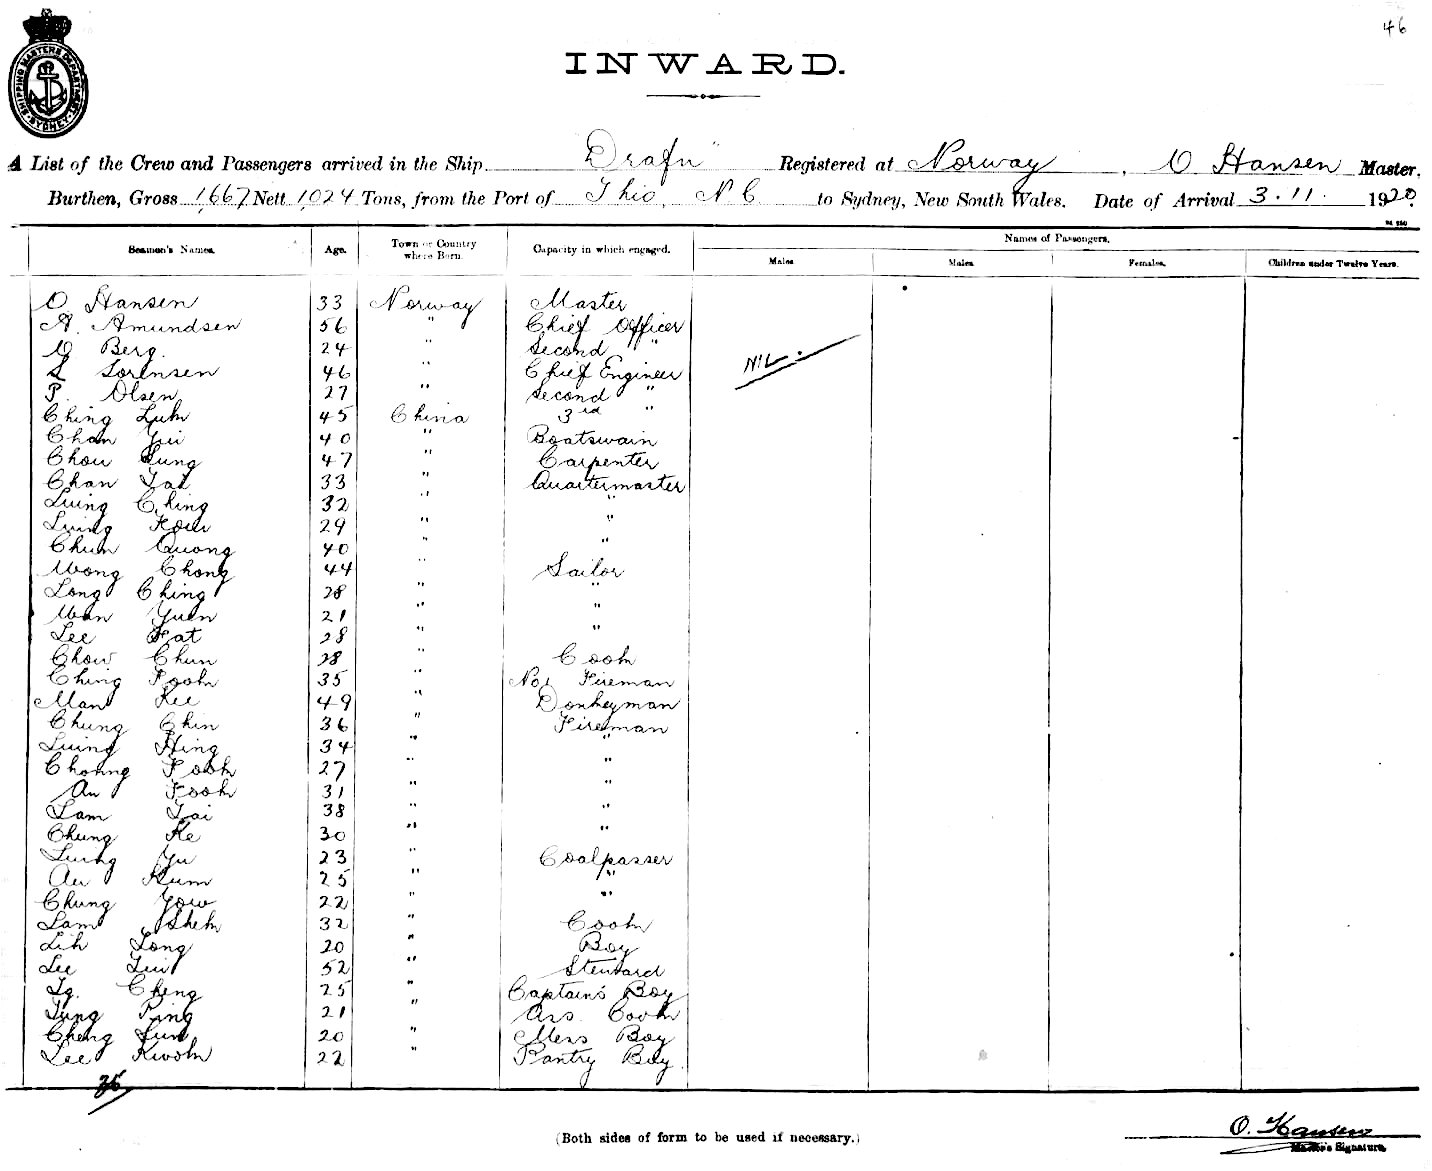 46
SHIPPING MASTERS DEPARTMENT SYDNEY
INWARD.
A List of the Crew and Passengers arrived in the Ship "Drafn" Registered at Norway, O Hansen Master.
Burthen, Gross 1,667 Nett 1,024 Tons, from the Port of Thio, N.C to Sydney, New South Wales. Date of Arrival 3.11. 1920.
Seamen's Names. Age. Town or Country where Born. Capacity in which engaged. Names of Passengers.
Males Males Females. Children under Twelve Years.
O Hansen 33 Norway Master
A. Amundsen 56 " Chief Officer
O Berg. 24 " Second "
S Sorensen 46 " Chief Engineer
P. Olsen 27 " Second "
NIL.
Ching Luk 45 China 3rd "
Chan Yui 40 " Boatswain
Chow Sung 47 " Carpenter
Chan Tai 33 " Quartermaster
Luing Ching 32 " "
Luing Kow 29 " "
Chun Quong 40 " "
Wong Chong 44 " Sailor
Long Ching 28 " "
Wan Yuen 21 " "
Lee Fat 28 " "
Chow Chun 28 " Cook
Ching Fook 35 " No 1 Fireman
Man Kee 49 " Donkeyman
Chung Chin 36 " Fireman
Luing Hing 34 " "
Choung Fook 27 " "
Au Fook 31 " "
Lam Tai 38 " "
Chung Ke 30 " "
Luing Yu 23 " Coalpasser
Au Kum 25 " "
Chung Yow 22 " "
Lam Shek 32 " Cook
Lik Long 20 " Boy
Lee Tui 52 " Steward
Tg. Cheng 25 " Captain's Boy
Tung Ping 21 " Ass. Cook
Cheng Sun 20 " Mess Boy
Lee Kwok 22 " Pantry Boy.
35
(Both sides of form to be used if necessary.)
O. Hansen
Master's Signature.